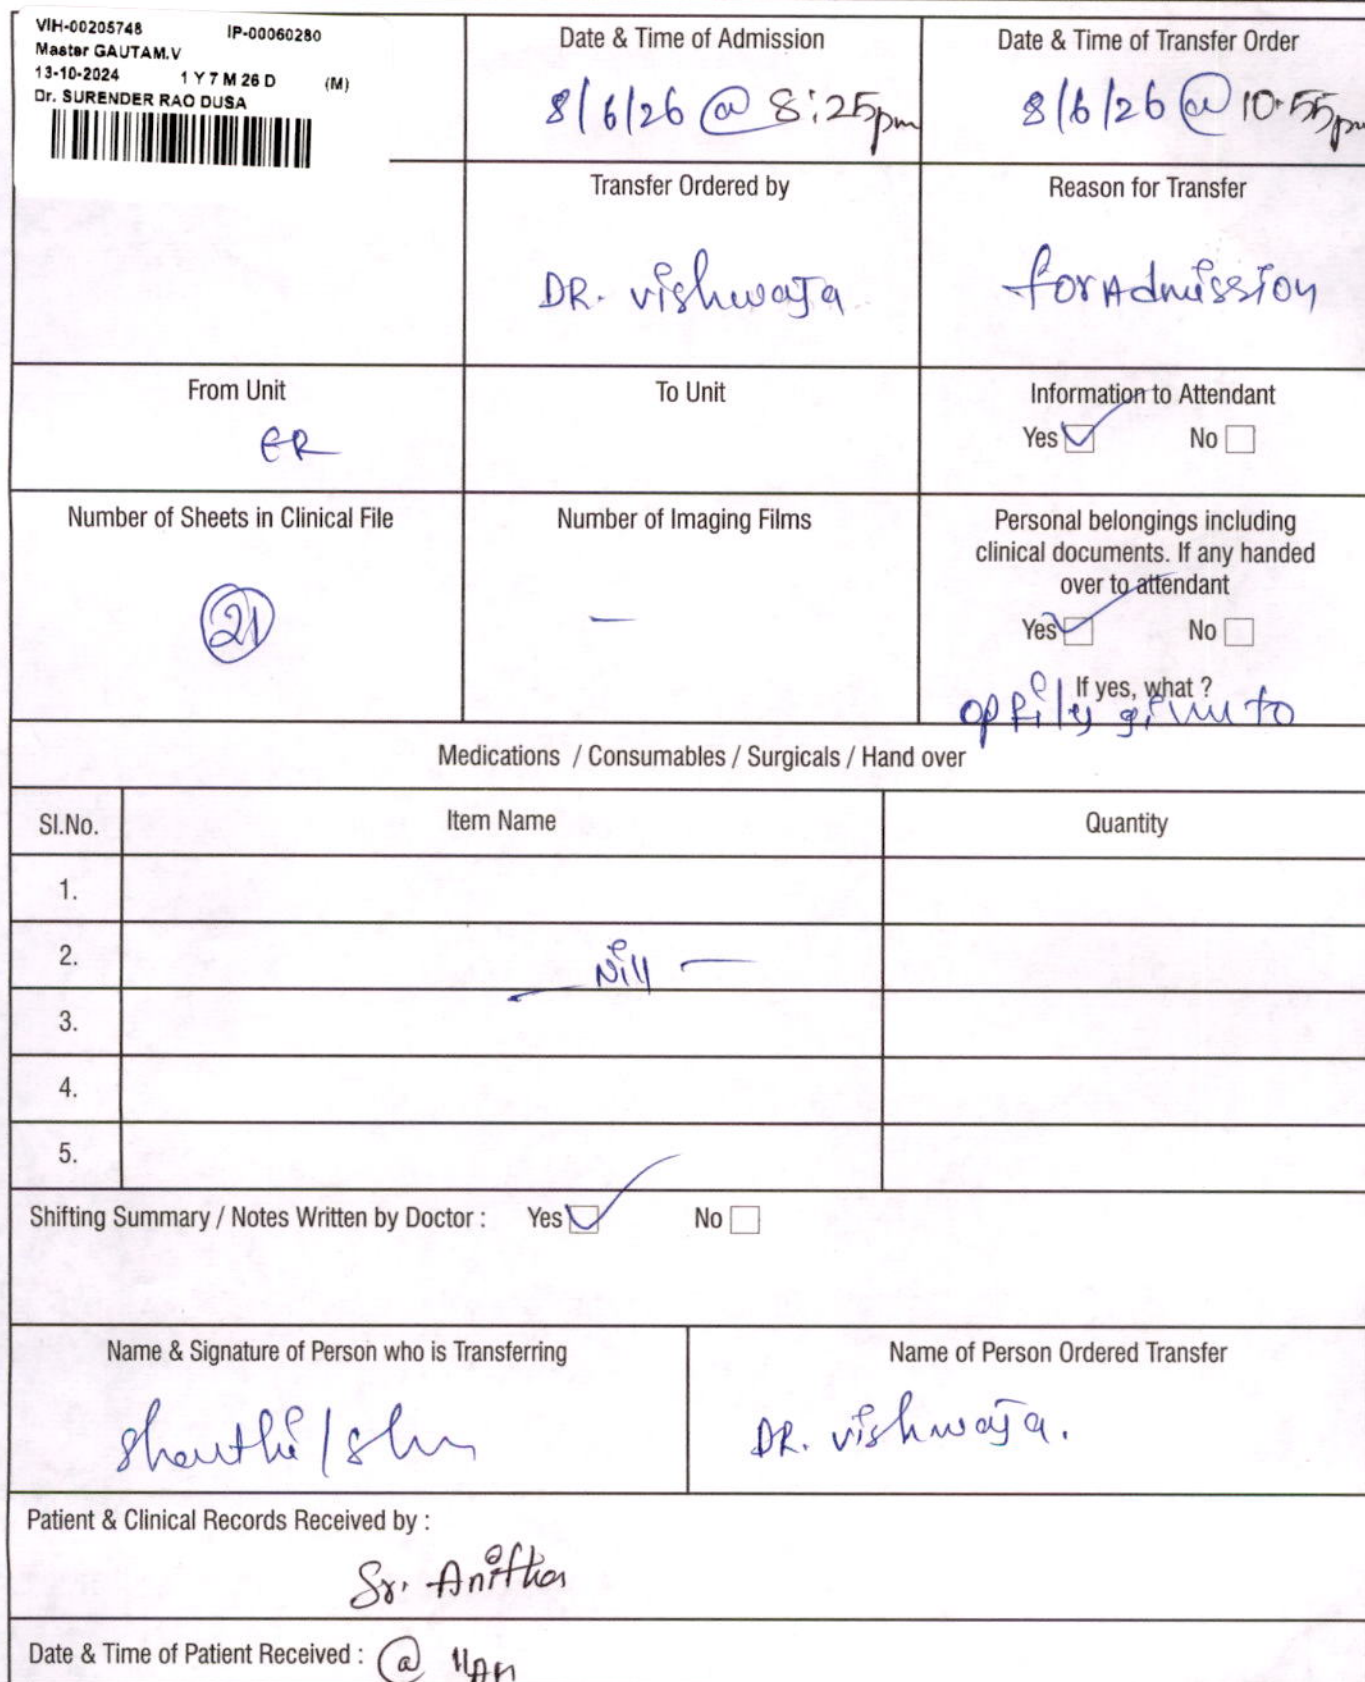 VIH-00205748 IP-00060280
Master GAUTAM.V
13-10-2024 1 Y 7 M 26 D (M)
Dr. SURENDER RAO DUSA
Date & Time of Admission
8/6/26 @ 8:25pm
Date & Time of Transfer Order
8/6/26 @ 10:55pm
Transfer Ordered by
DR. vishwaja
Reason for Transfer
for Admission
From Unit
ER
To Unit
Information to Attendant
Yes ✓ No
Number of Sheets in Clinical File
21
Number of Imaging Films
—
Personal belongings including
clinical documents. If any handed
over to attendant
Yes ✓ No
If yes, what ?
op files given to
Medications / Consumables / Surgicals / Hand over
Sl.No. Item Name Quantity
1.
2. — Nill —
3.
4.
5.
Shifting Summary / Notes Written by Doctor : Yes ✓ No
Name & Signature of Person who is Transferring
Shanthi /
Name of Person Ordered Transfer
DR. vishwaja.
Patient & Clinical Records Received by :
Sr. Anitha
Date & Time of Patient Received : @ 11